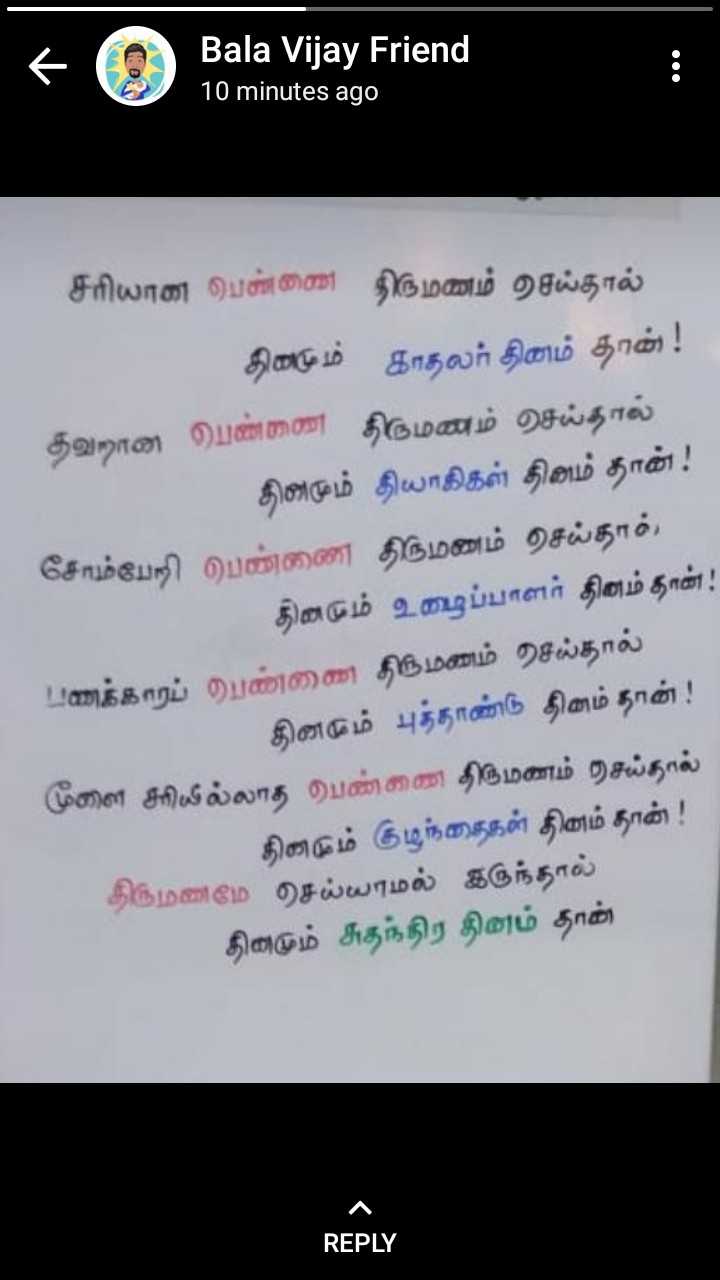 Bala Vijay Friend
10 minutes ago
சரியான பெண்ணை திருமணம் செய்தால்
தினமும் காதலர் தினம் தான்!
தவறான பெண்ணை திருமணம் செய்தால்
தினமும் தியாகிகள் தினம் தான்!
சோம்பேறி பெண்ணை திருமணம் செய்தால்
தினமும் உழைப்பாளர் தினம் தான்!
பணக்காரப் பெண்ணை திருமணம் செய்தால்
தினமும் புத்தாண்டு தினம் தான்!
மூளை சரியில்லாத பெண்ணை திருமணம் செய்தால்
தினமும் குழந்தைகள் தினம் தான்!
திருமணமே செய்யாமல் இருந்தால்
தினமும் சுதந்திர தினம் தான்
REPLY